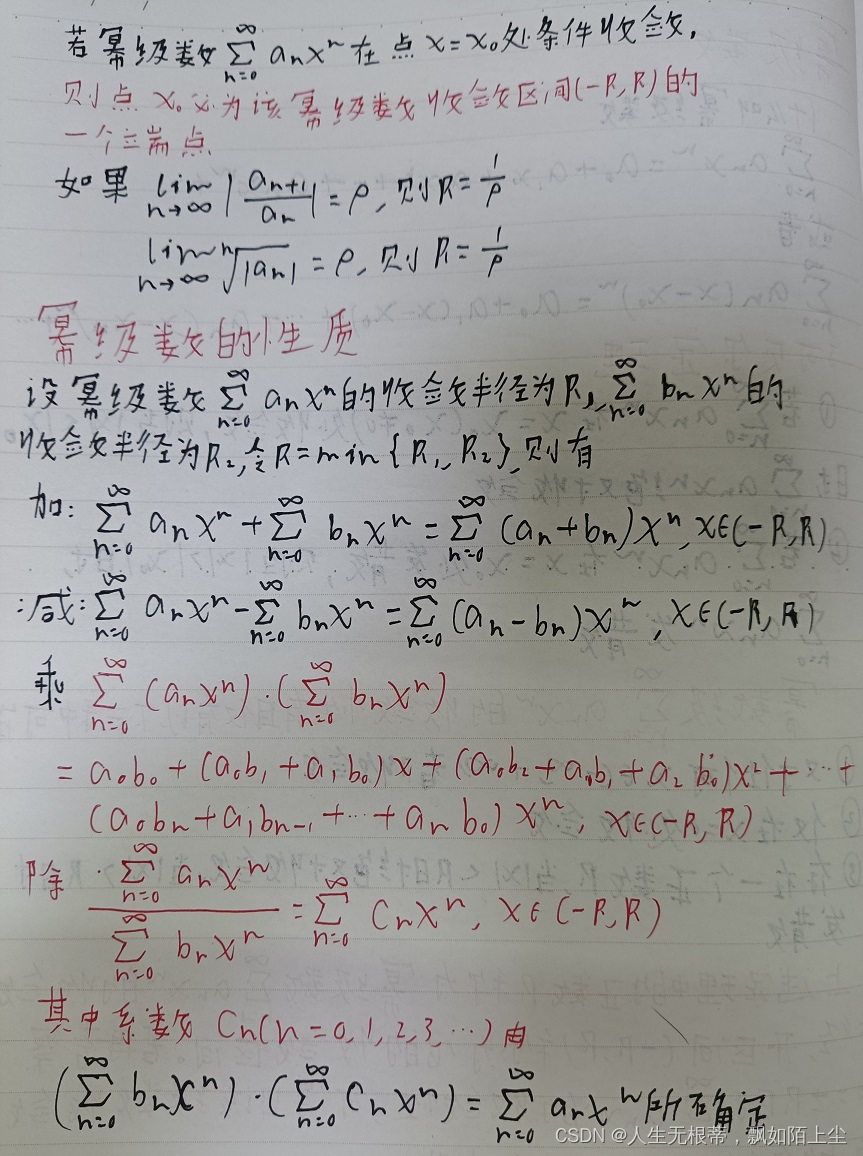 若幂级数 ∑_{n=0}^{∞} aₙxⁿ 在点 x=x₀处条件收敛,
则点 x₀必为该幂级数收敛区间(-R,R)的
一个端点
如果 lim_{n→∞} |aₙ₊₁/aₙ| = ρ, 则 R = 1/ρ
lim_{n→∞} ⁿ√|aₙ| = ρ, 则 R = 1/ρ
幂级数的性质
设幂级数 ∑_{n=0}^{∞} aₙxⁿ的收敛半径为R₁, ∑_{n=0}^{∞} bₙxⁿ的
收敛半径为R₂,令R=min{R₁,R₂},则有
加: ∑_{n=0}^{∞} aₙxⁿ + ∑_{n=0}^{∞} bₙxⁿ = ∑_{n=0}^{∞} (aₙ+bₙ)xⁿ, x∈(-R,R)
减: ∑_{n=0}^{∞} aₙxⁿ - ∑_{n=0}^{∞} bₙxⁿ = ∑_{n=0}^{∞} (aₙ-bₙ)xⁿ, x∈(-R,R)
乘 ∑_{n=0}^{∞} (aₙxⁿ)·(∑_{n=0}^{∞} bₙxⁿ)
= a₀b₀ + (a₀b₁+a₁b₀)x + (a₀b₂+a₁b₁+a₂b₀)x² + ··· +
(a₀bₙ+a₁bₙ₋₁+···+aₙb₀)xⁿ, x∈(-R,R)
除 (∑_{n=0}^{∞} aₙxⁿ)/(∑_{n=0}^{∞} bₙxⁿ) = ∑_{n=0}^{∞} Cₙxⁿ, x∈(-R,R)
其中系数 Cₙ(n=0,1,2,3,···)由
(∑_{n=0}^{∞} bₙxⁿ)·(∑_{n=0}^{∞} Cₙxⁿ) = ∑_{n=0}^{∞} aₙxⁿ所确定
CSDN @人生无根蒂，飘如陌上尘